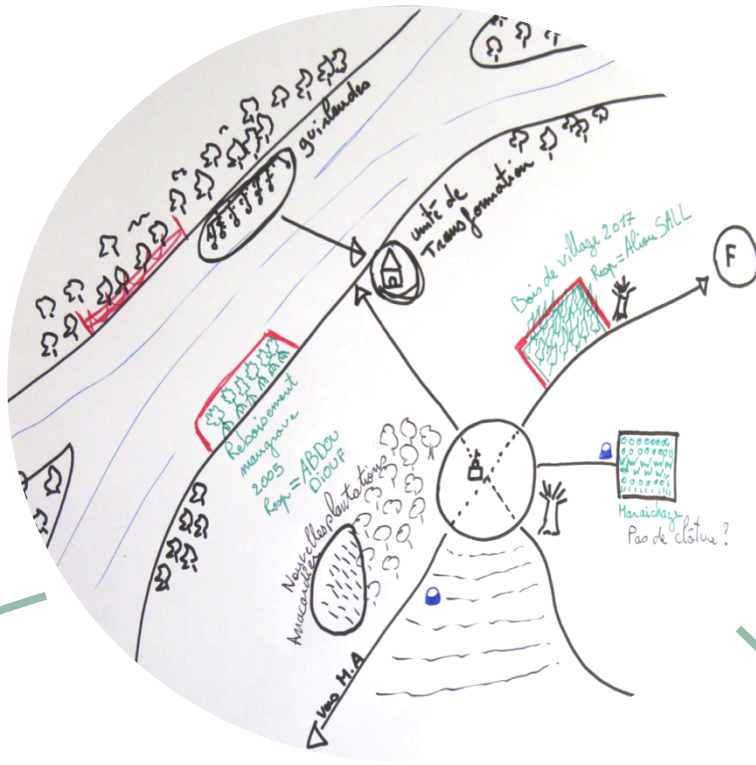 guirlandes
unité de
Transformation
Bois de village 2017
Resp = Aliou SALL
F
Reboisement
mangrove
2005
Resp = ABDOU
DIOUF
Nouvelles plantations
Anacardier
Maraichage
Pas de clôture ?
vers M.A